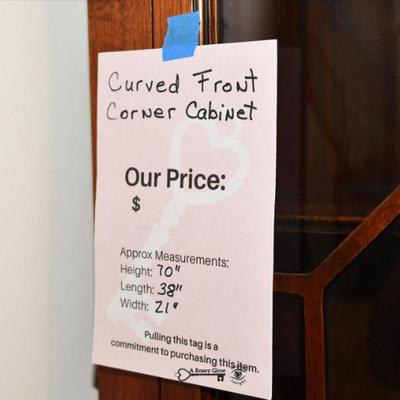 Curved Front
Corner Cabinet
Our Price:
$
Approx Measurements:
Height: 70"
Length: 38"
Width: 21"
Pulling this tag is a
commitment to purchasing this item.
A Rosey Glow
Insight